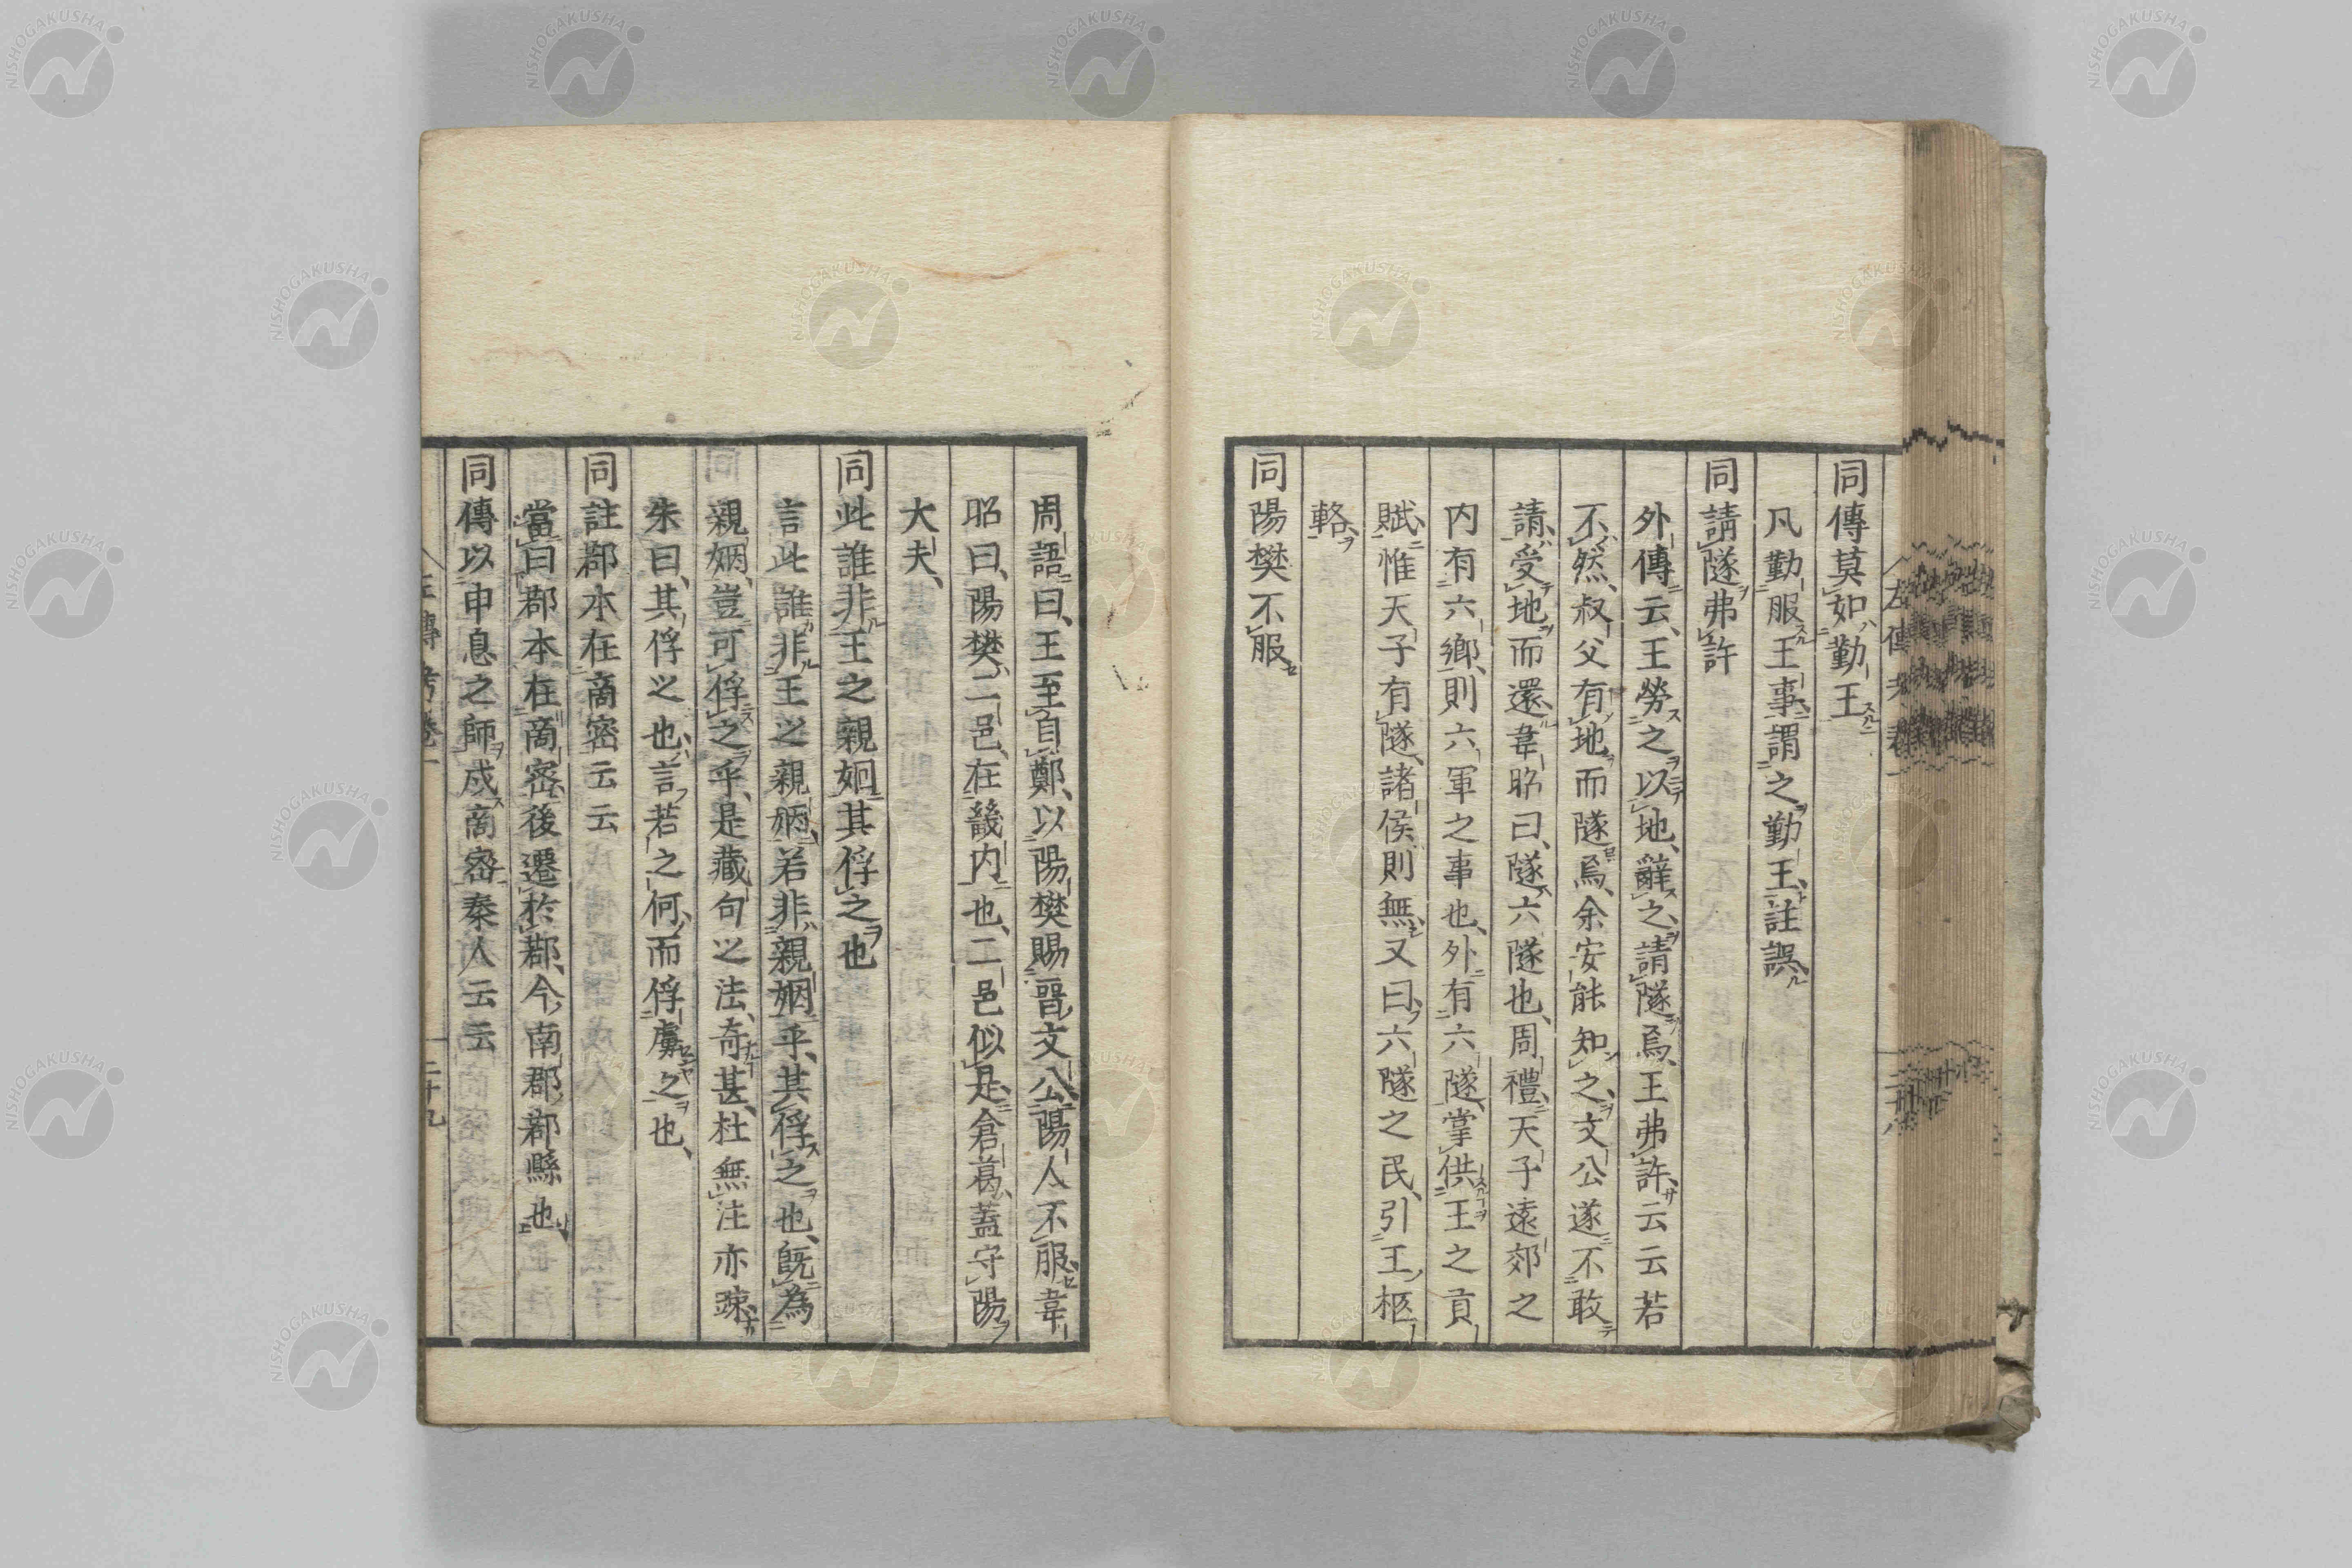 同傳莫如勤王
凡勤服王事謂之勤王註誤
同請隧弗許
外傳云王勞之以地辭之請隧焉王弗許云云若
不然叔父有地而隧焉余安能知之文公遂不敢
請受地而還韋昭曰隧六隧也周禮天子遠郊之
内有六鄉則六軍之事也外有六隧掌供王之貢
賦惟天子有隧諸侯則無又曰六隧之民引王柩
輅
同陽樊不服
周語曰王至自鄭以陽樊賜晉文公陽人不服韋
昭曰陽樊二邑在畿内也二邑似是倉葛蓋守陽
大夫
同此誰非王之親姻其俘之也
言此誰非王之親姻若非親姻乎其俘之也既為
親姻豈可俘之乎是藏句之法奇甚杜無注亦疎
朱曰其俘之也言若之何而俘虜之也
同註鄀本在商密云云
當曰鄀本在商密後遷於鄀今南郡鄀縣也
同傳以申息之師戍商密秦人云云
左傳考卷一
二十九
NISHOGAKUSHA